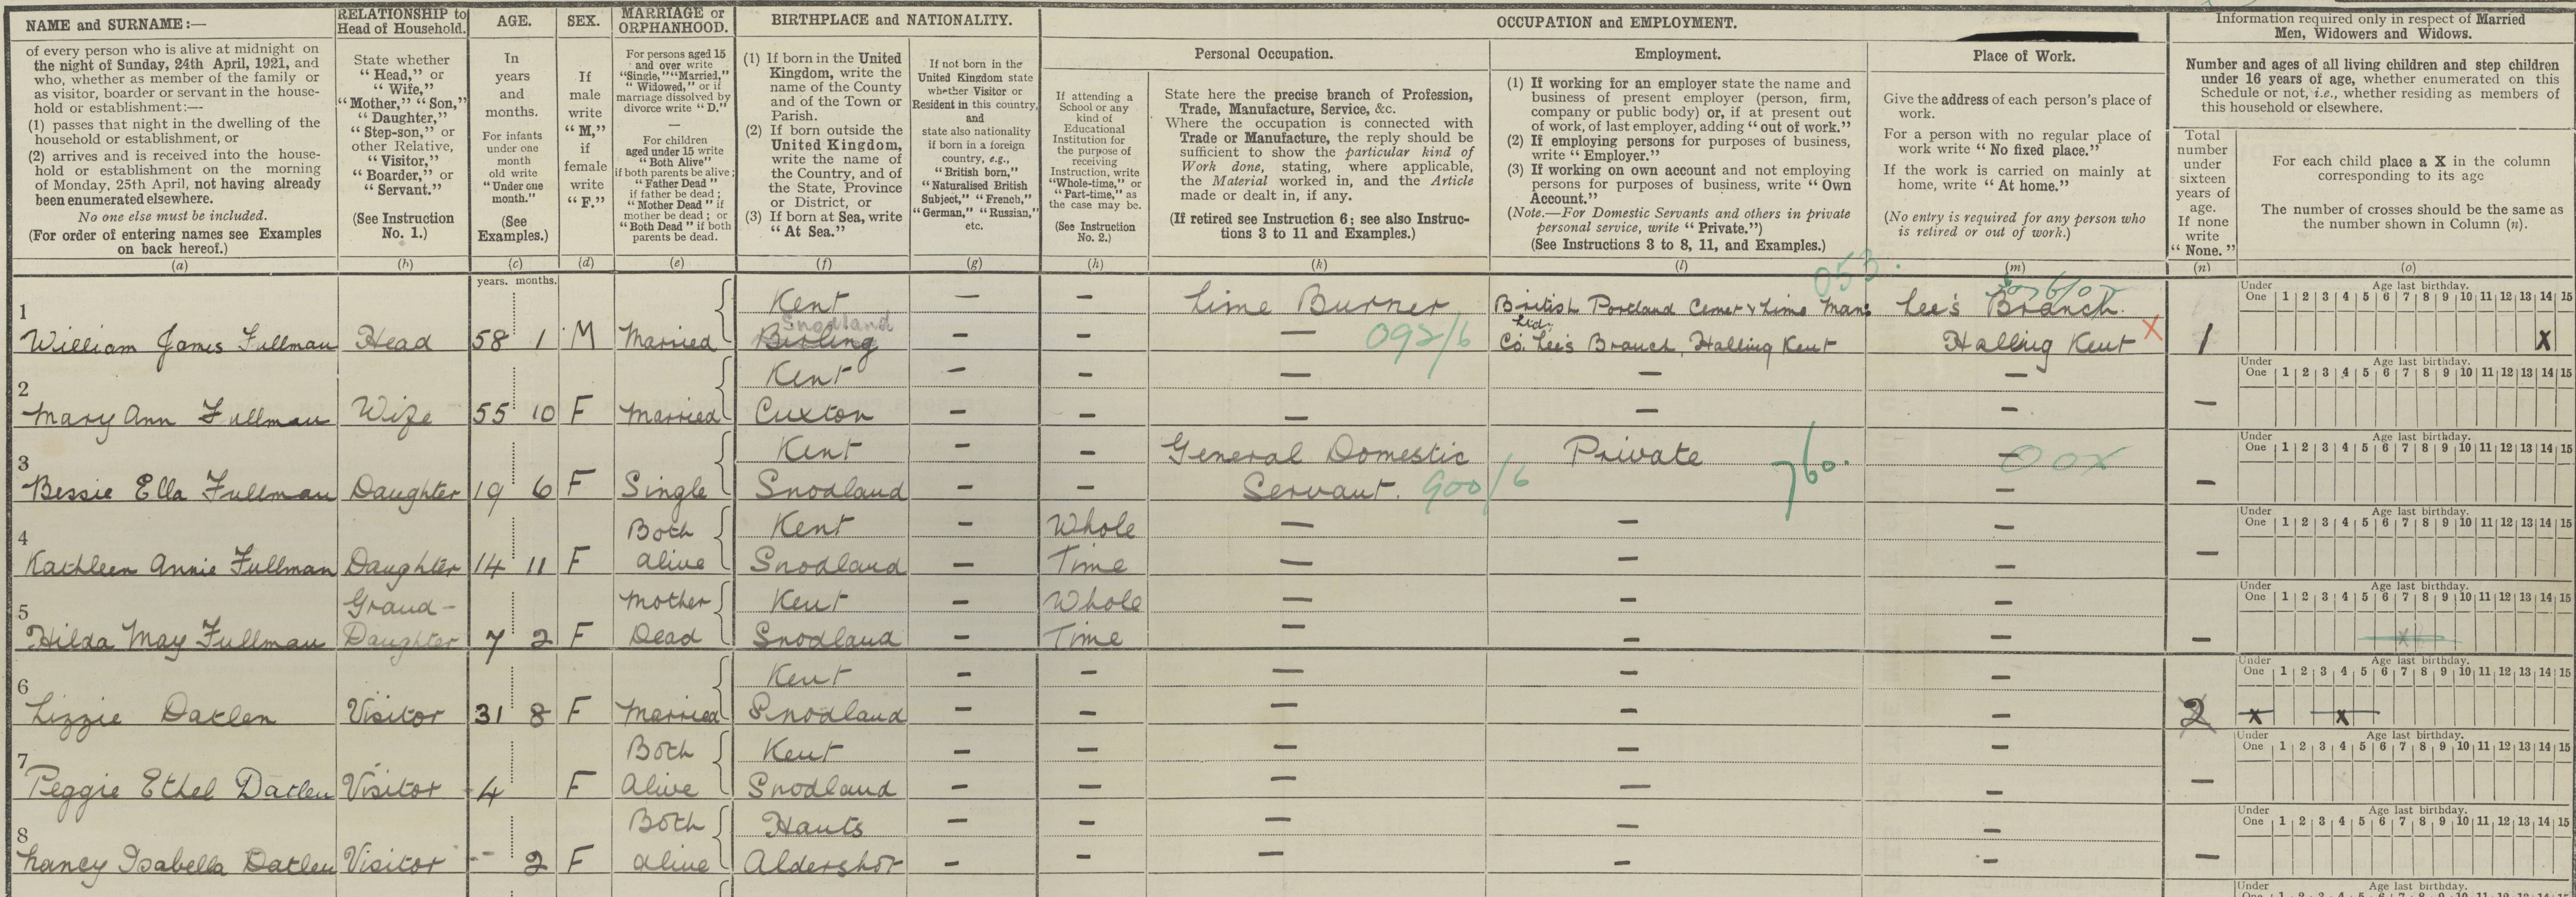 NAME and SURNAME:—
of every person who is alive at midnight on
the night of Sunday, 24th April, 1921, and
who, whether as member of the family or
as visitor, boarder or servant in the house-
hold or establishment:—
(1) passes that night in the dwelling of the
household or establishment, or
(2) arrives and is received into the house-
hold or establishment on the morning
of Monday, 25th April, not having already
been enumerated elsewhere.
No one else must be included.
(For order of entering names see Examples
on back hereof.)
(a)
RELATIONSHIP to
Head of Household.
State whether
"Head," or
"Wife,"
"Mother," "Son,"
"Daughter,"
"Step-son," or
other Relative,
"Visitor,"
"Boarder," or
"Servant."
(See Instruction
No. 1.)
(b)
AGE.
In
years
and
months.
For infants
under one
month
old write
"Under one
month."
(See
Examples.)
(c)
years. months.
SEX.
If
male
write
"M,"
if
female
write
"F."
(d)
MARRIAGE or
ORPHANHOOD.
For persons aged 15
and over write
"Single," "Married,"
"Widowed," or if
marriage dissolved by
divorce write "D."
—
For children
aged under 15 write
"Both Alive"
if both parents be alive;
"Father Dead"
if father be dead;
"Mother Dead" if
mother be dead; or
"Both Dead" if both
parents be dead.
(e)
BIRTHPLACE and NATIONALITY.
(1) If born in the United
Kingdom, write the
name of the County
and of the Town or
Parish.
(2) If born outside the
United Kingdom,
write the name of
the Country, and of
the State, Province
or District, or
(3) If born at Sea, write
"At Sea."
(f)
If not born in the
United Kingdom state
whether Visitor or
Resident in this country,
and
state also nationality
if born in a foreign
country, e.g.,
"British born,"
"Naturalised British
Subject," "French,"
"German," "Russian,"
etc.
(g)
OCCUPATION and EMPLOYMENT.
If attending a
School or any
kind of
Educational
Institution for
the purpose of
receiving
Instruction, write
"Whole-time," or
"Part-time," as
the case may be.
(See Instruction
No. 2.)
(h)
Personal Occupation.
State here the precise branch of Profession,
Trade, Manufacture, Service, &c.
Where the occupation is connected with
Trade or Manufacture, the reply should be
sufficient to show the particular kind of
Work done, stating, where applicable,
the Material worked in, and the Article
made or dealt in, if any.
(If retired see Instruction 6; see also Instruc-
tions 3 to 11 and Examples.)
(k)
Employment.
(1) If working for an employer state the name and
business of present employer (person, firm,
company or public body) or, if at present out
of work, of last employer, adding "out of work."
(2) If employing persons for purposes of business,
write "Employer."
(3) If working on own account and not employing
persons for purposes of business, write "Own
Account."
(Note.—For Domestic Servants and others in private
personal service, write "Private.")
(See Instructions 3 to 8, 11, and Examples.)
(l)
Place of Work.
Give the address of each person's place of
work.
For a person with no regular place of
work write "No fixed place."
If the work is carried on mainly at
home, write "At home."
(No entry is required for any person who
is retired or out of work.)
(m)
Information required only in respect of Married
Men, Widowers and Widows.
Number and ages of all living children and step children
under 16 years of age, whether enumerated on this
Schedule or not, i.e., whether residing as members of
this household or elsewhere.
Total
number
under
sixteen
years of
age.
If none
write
"None."
(n)
For each child place a X in the column
corresponding to its age
The number of crosses should be the same as
the number shown in Column (n).
(o)
053.
1
Kent — — Lime Burner British Portland Cemet & Lime Man: Lee's Branch.
Snodland
William James Fullman Head 58 1 M Married Birling — — — 092/6 Co. Ltd. Lee's Branch, Halling Kent Halling Kent X 1 X
Under One 1 2 3 4 5 6 7 8 9 10 11 12 13 14 15
Age last birthday.
2
Kent — — — — —
Mary Ann Fullman Wife 55 10 F Married Cuxton — — — — — —
Under One 1 2 3 4 5 6 7 8 9 10 11 12 13 14 15
Age last birthday.
3
Kent — — General Domestic Private 760. — 00X
Bessie Ella Fullman Daughter 19 6 F Single Snodland — — Servant. 900/6 — —
Under One 1 2 3 4 5 6 7 8 9 10 11 12 13 14 15
Age last birthday.
4
Both Kent — Whole — — —
Kathleen Annie Fullman Daughter 14 11 F alive Snodland — Time — — — —
Under One 1 2 3 4 5 6 7 8 9 10 11 12 13 14 15
Age last birthday.
5
Grand- Mother Kent — Whole — — —
Hilda May Fullman Daughter 7 2 F Dead Snodland — Time — — — — x
Under One 1 2 3 4 5 6 7 8 9 10 11 12 13 14 15
Age last birthday.
6
Kent — — — — —
Lizzie Datlen Visitor 31 8 F Married Snodland — — — — — 2 x x
Under One 1 2 3 4 5 6 7 8 9 10 11 12 13 14 15
Age last birthday.
7
Both Kent — — — — —
Peggie Ethel Datlen Visitor 4 F Alive Snodland — — — — — —
Under One 1 2 3 4 5 6 7 8 9 10 11 12 13 14 15
Age last birthday.
8
Both Hants — — — — —
Nancy Isabella Datlen Visitor - 2 F alive Aldershot — — — — — —
Under One 1 2 3 4 5 6 7 8 9 10 11 12 13 14 15
Age last birthday.
Under
Age last birthday.